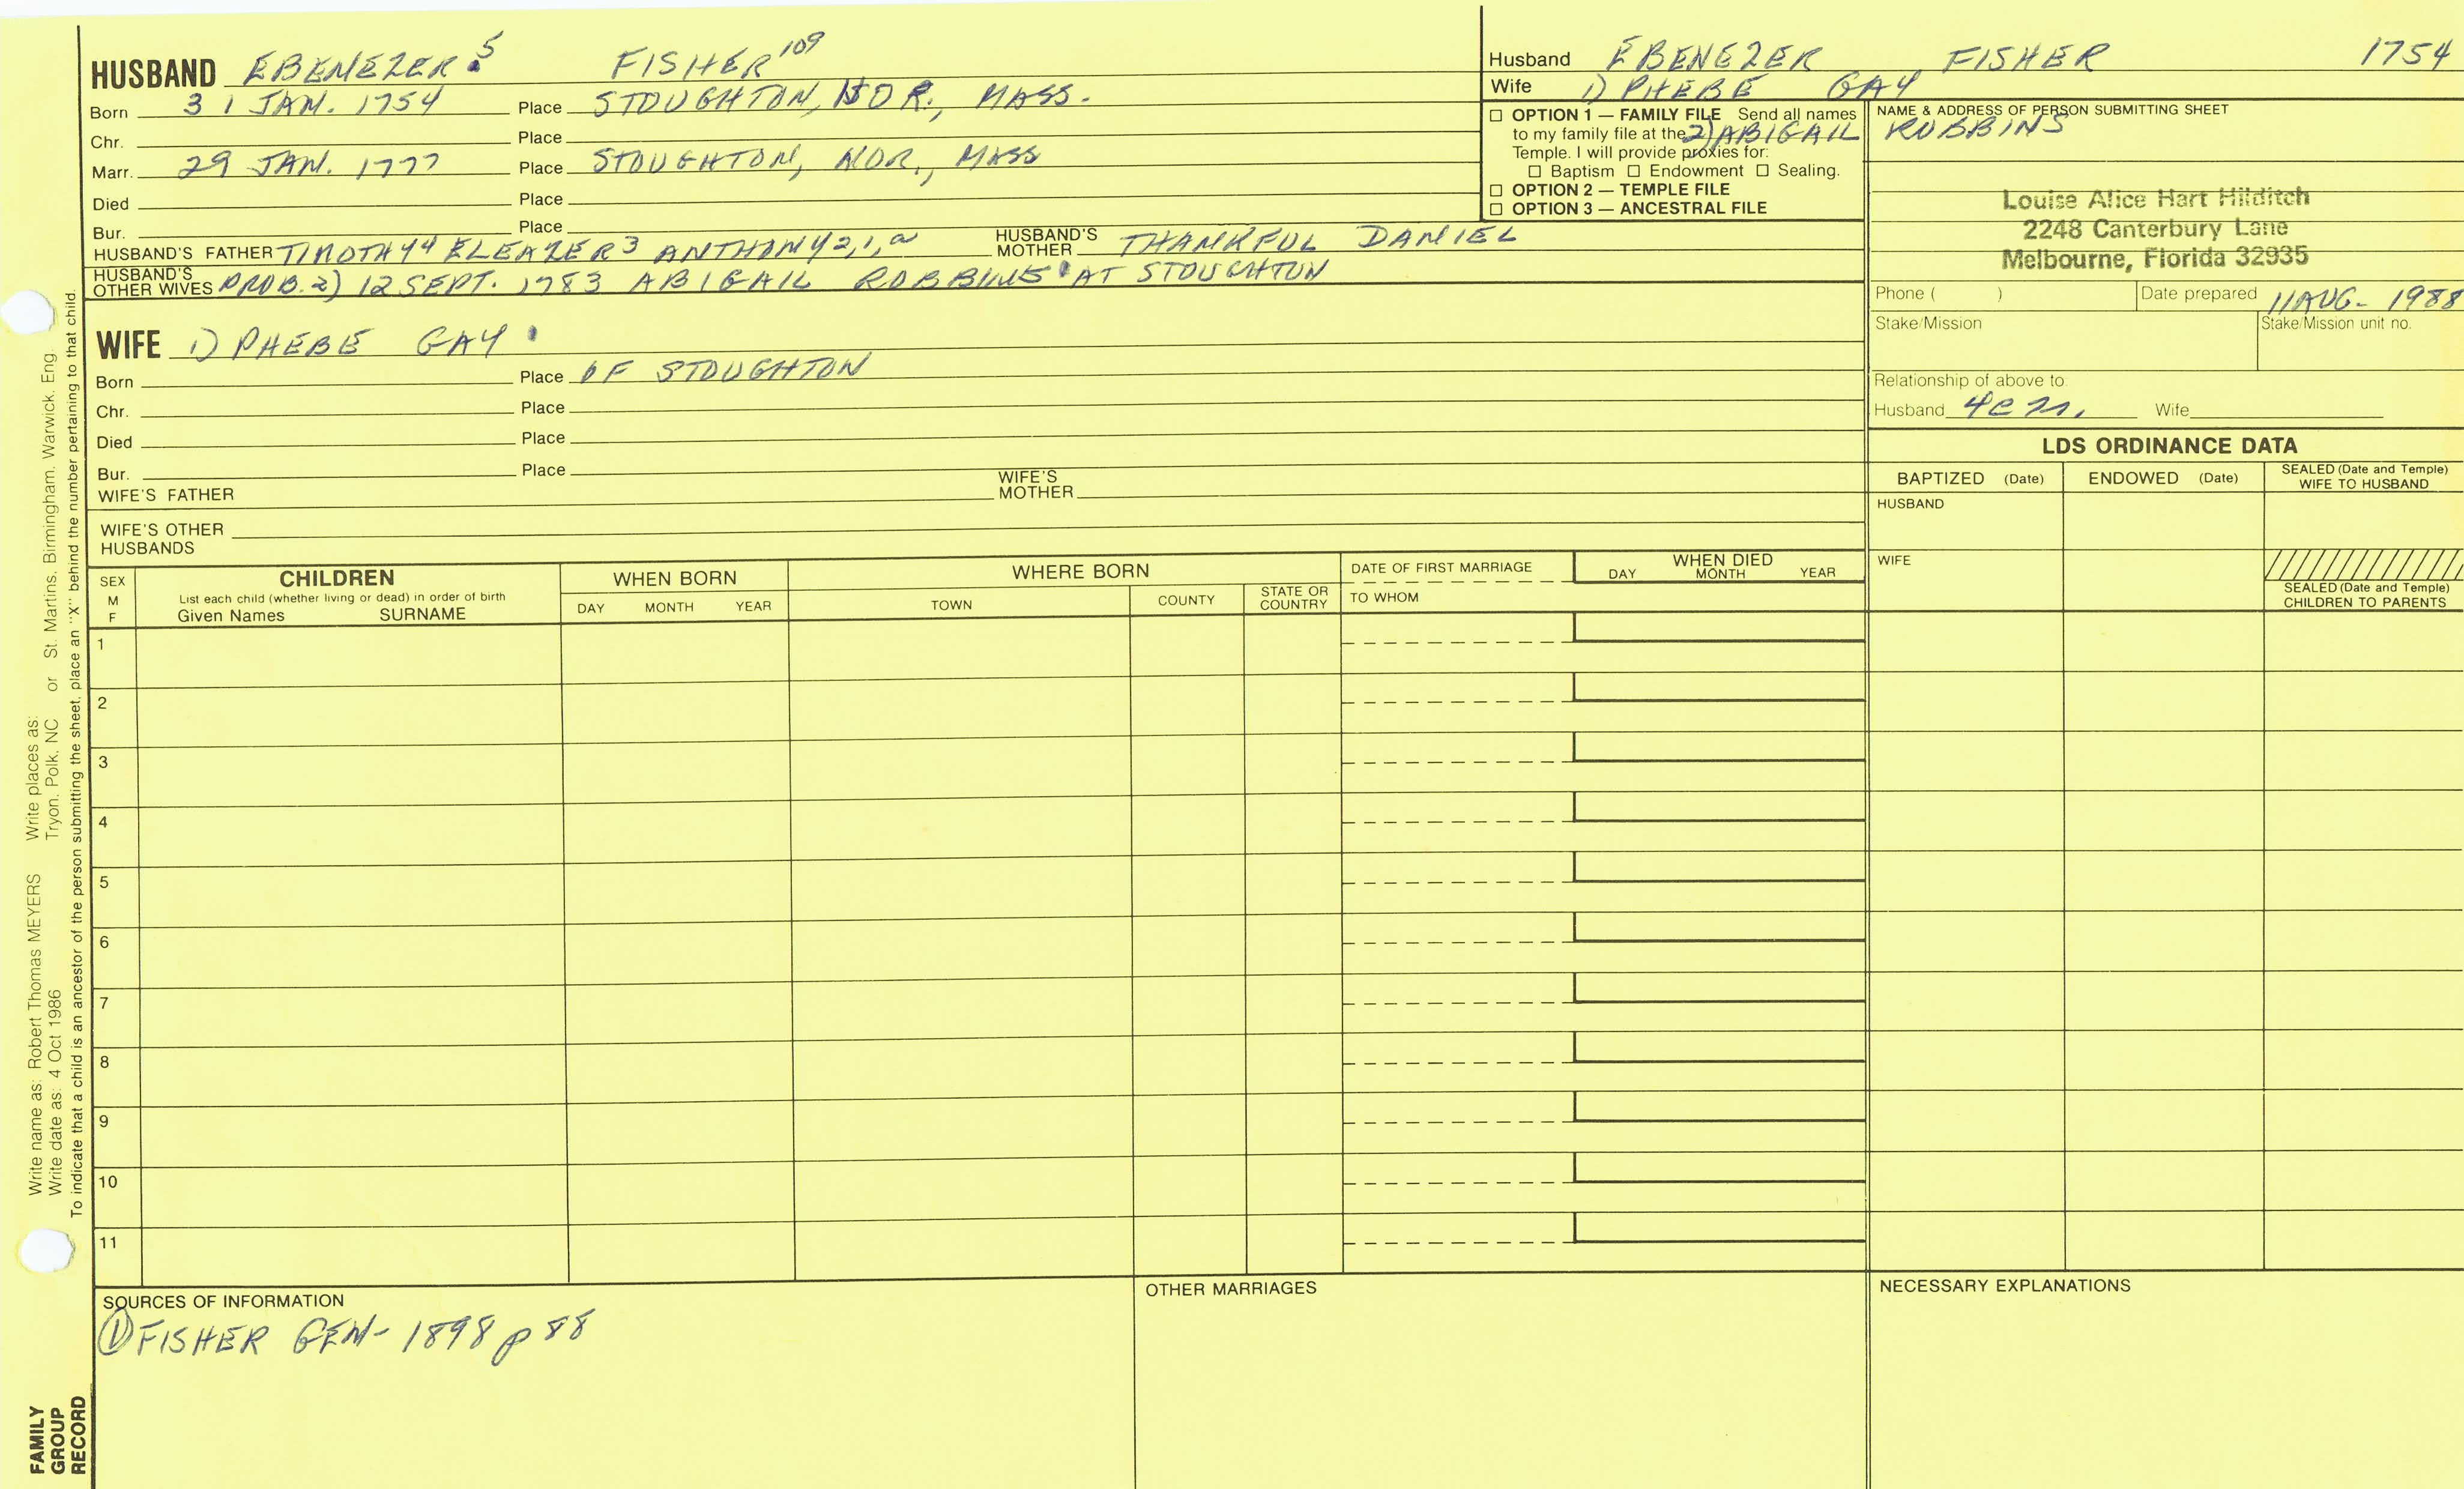 HUSBAND EBENEZER 5 FISHER 109
Born 31 JAN. 1754 Place STOUGHTON, NOR., MASS.
Chr. Place
Marr. 29 JAN. 1777 Place STOUGHTON, NOR., MASS
Died Place
Bur. Place
HUSBAND'S FATHER TIMOTHY4 ELEAZER3 ANTHONY2,1,a HUSBAND'S MOTHER THANKFUL DANIEL
HUSBAND'S OTHER WIVES PROB. 2) 12 SEPT. 1783 ABIGAIL ROBBINS AT STOUGHTON
WIFE 1) PHEBE GAY
Born Place OF STOUGHTON
Chr. Place
Died Place
Bur. Place
WIFE'S FATHER WIFE'S MOTHER
WIFE'S OTHER HUSBANDS
Husband EBENEZER FISHER 1754
Wife 1) PHEBE GAY
2) ABIGAIL ROBBINS
☐ OPTION 1 — FAMILY FILE Send all names
to my family file at the
Temple. I will provide proxies for:
☐ Baptism ☐ Endowment ☐ Sealing.
☐ OPTION 2 — TEMPLE FILE
☐ OPTION 3 — ANCESTRAL FILE
NAME & ADDRESS OF PERSON SUBMITTING SHEET
Louise Alice Hart Hilditch
2248 Canterbury Lane
Melbourne, Florida 32935
Phone ( ) Date prepared 11 AUG- 1988
Stake/Mission Stake/Mission unit no.
Relationship of above to
Husband Wife
LDS ORDINANCE DATA
BAPTIZED (Date) ENDOWED (Date) SEALED (Date and Temple) WIFE TO HUSBAND
HUSBAND
WIFE
SEALED (Date and Temple) CHILDREN TO PARENTS
SEX M F
CHILDREN
List each child (whether living or dead) in order of birth
Given Names SURNAME
WHEN BORN
DAY MONTH YEAR
WHERE BORN
TOWN COUNTY STATE OR COUNTRY
DATE OF FIRST MARRIAGE
TO WHOM
WHEN DIED
DAY MONTH YEAR
1
2
3
4
5
6
7
8
9
10
11
SOURCES OF INFORMATION
① FISHER GEN- 1898 p 88
OTHER MARRIAGES
NECESSARY EXPLANATIONS
Write name as: Robert Thomas MEYERS Write places as:
Write date as: 4 Oct 1986 Tryon, Polk, NC or St. Martins, Birmingham, Warwick, Eng.
To indicate that a child is an ancestor of the person submitting the sheet, place an "X" behind the number pertaining to that child.
FAMILY
GROUP
RECORD